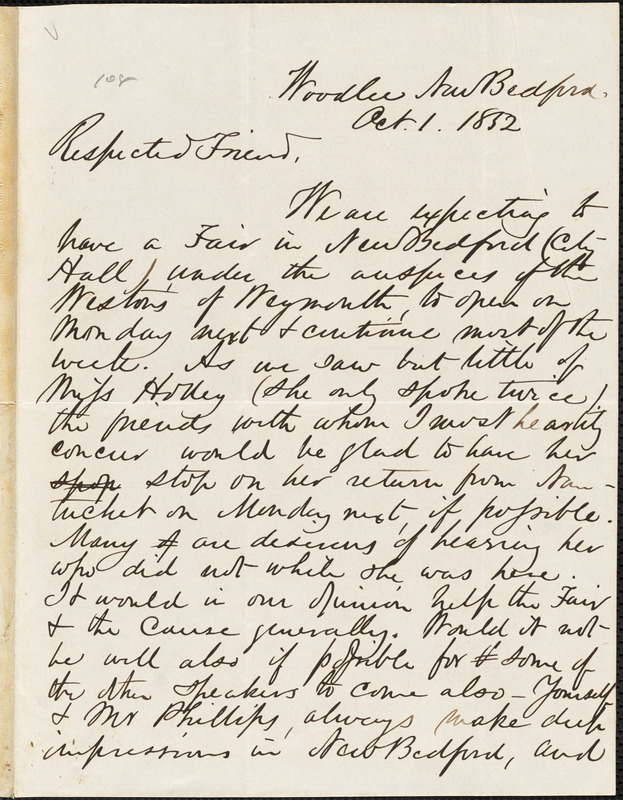 108
Woodlee New Bedford.
Oct. 1. 1852
Respected Friend,
We are expecting to
have a Fair in New Bedford (City
Hall) under the auspices of the
Westons of Weymouth, to open on
Monday next & continue most of the
week. As we saw but little of
Miss Holley (she only spoke twice)
the friends with whom I most heartily
concur would be glad to have her
stop on her return from Nan-
tucket on Monday next, if possible.
Many are desirous of hearing her
who did not while she was here.
It would in our opinion help the Fair
& the Cause generally. Would it not
be well also if possible for some of
the other speakers to come also - Yourself
& Mr Phillips, always make deep
impressions in New Bedford, and